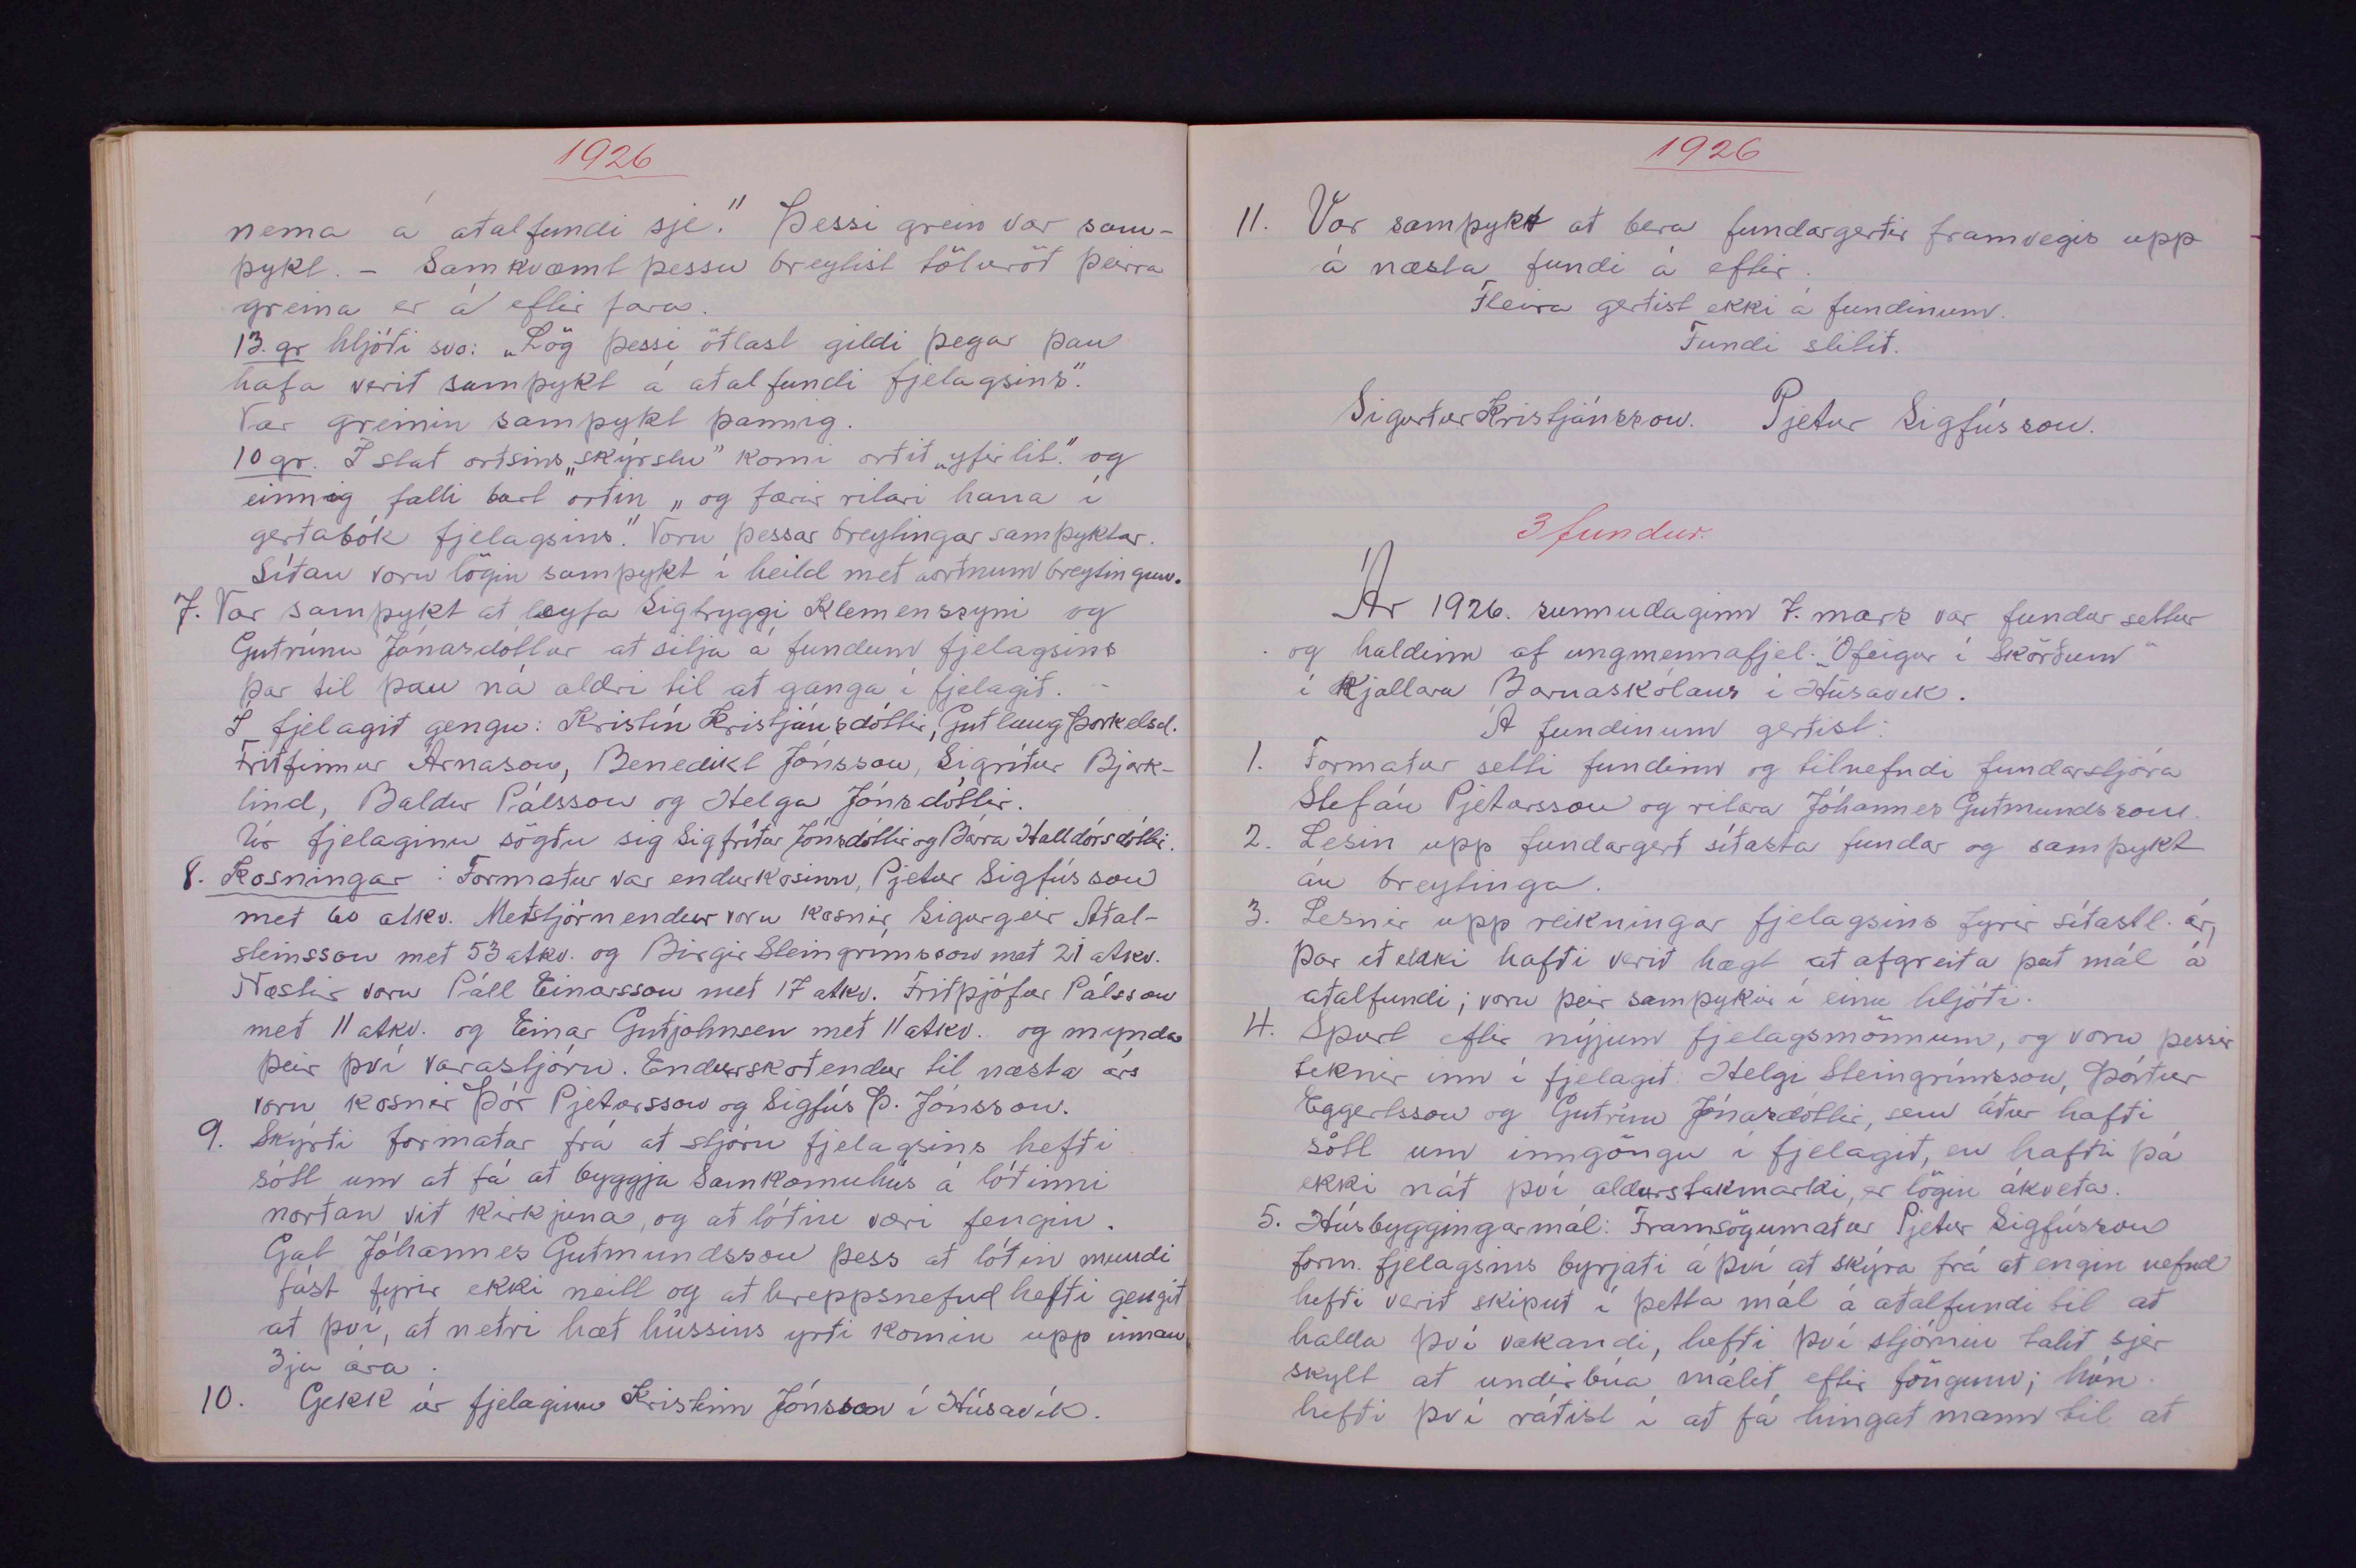 1926
nema á aðalfundi sje." Þessi grein var sam-
þykt. - Samkvæmt þessu breytist töluröð þeirra
greina er á eftir fara.
13. gr hljóði svo: „Lög þessi öðlast gildi þegar þau
hafa verið samþykt á aðalfundi fjelagsins".
Var greinin samþykt þannig.
10 gr. I stað orðsins „skýrslu" komi orðið „yfirlit." og
einnig falli burt orðin „og færir ritari hana í
gerðabók fjelagsins". Voru þessar breytingar samþyktar.
Síðan voru lögin samþykt í heild með áorðnum breytingum.
7. Var samþykt að leyfa Sigtryggi Klemenssyni og
Guðrúnu Jónasdóttur að sitja á fundum fjelagsins
þar til þau ná aldri til að ganga í fjelagið. -
I fjelagið gengu: Kristín Kristjánsdóttir, Guðlaug Þorkelsd.
Friðfinnur Árnason, Benedikt Jónsson, Sigríður Bjark-
lind, Baldur Pálsson og Helga Jónsdóttir.
Úr fjelaginu sögðu sig Sigfríður Jónsdóttir og Bára Halldórsdóttir.
8. Kosningar: Formaður var endurkosinn, Pjetur Sigfússon
með 60 atkv. Meðstjórnendur voru kosnir, Sigurgeir Aðal-
steinsson með 53 atkv. og Birgir Steingrímsson með 21 atkv.
Næstir voru Páll Einarsson með 17 atkv. Friðþjófur Pálsson
með 11 atkv. og Einar Guðjohnsen með 11 atkv. og mynda
þeir því varastjórn. Endurskoðendur til næsta árs
voru kosnir Þór Pjetursson og Sigfús Þ. Jónsson.
9. Skýrði formaður frá að stjórn fjelagsins hefði
sótt um að fá að byggja Samkomuhús á lóðinni
norðan við kirkjuna, og að lóðin væri fengin.
Gat Jóhannes Guðmundsson þess að lóðin mundi
fást fyrir ekki neitt og að hreppsnefnd hefði gengið
að því, að neðri hæð hússins yrði komin upp innan
3ja ára.
10. Gekk úr fjelaginu Kristinn Jónsson í Húsavík.
1926
11. Var samþykt að bera fundargerðir framvegis upp
á næsta fundi á eftir.
Fleira gerðist ekki á fundinum.
Fundi slitið.
Sigurður Kristjánsson. Pjetur Sigfússon.
3 fundur.
Ár 1926. sunnudaginn 7. mars var fundur settur
og haldinn af ungmennafjel. „Ófeigur í Skörðum"
í kjallara Barnaskólans í Húsavík.
Á fundinum gerðist:
1. Formaður setti fundinn og tilnefndi fundarstjóra
Stefán Pjetursson og ritara Jóhannes Guðmundsson.
2. Lesin upp fundargerð síðasta fundar og samþykt
án breytinga.
3. Lesnir upp reikningar fjelagsins fyrir síðastl. ár,
þar eð ekki hafði verið hægt að afgreiða það mál á
aðalfundi; voru þeir samþykir í einu hljóði.
4. Spurt eftir nýjum fjelagsmönnum, og voru þessir
teknir inn í fjelagið: Helgi Steingrímsson, Þórður
Eggertsson og Guðrún Jónasdóttir, sem áður hafði
sótt um inngöngu í fjelagið, en hafði þá
ekki náð því aldurstakmarki, er lögin ákveða.
5. Húsbyggingarmál: Framsögumaður Pjetur Sigfússon
form. fjelagsins byrjaði á því að skýra frá að engin nefnd
hefði verið skipuð í þetta mál á aðalfundi til að
halda því vakandi, hefði því stjórnin talið sjer
skylt að undirbúa málið eftir föngum; hún
hefði því ráðist í að fá hingað mann til að